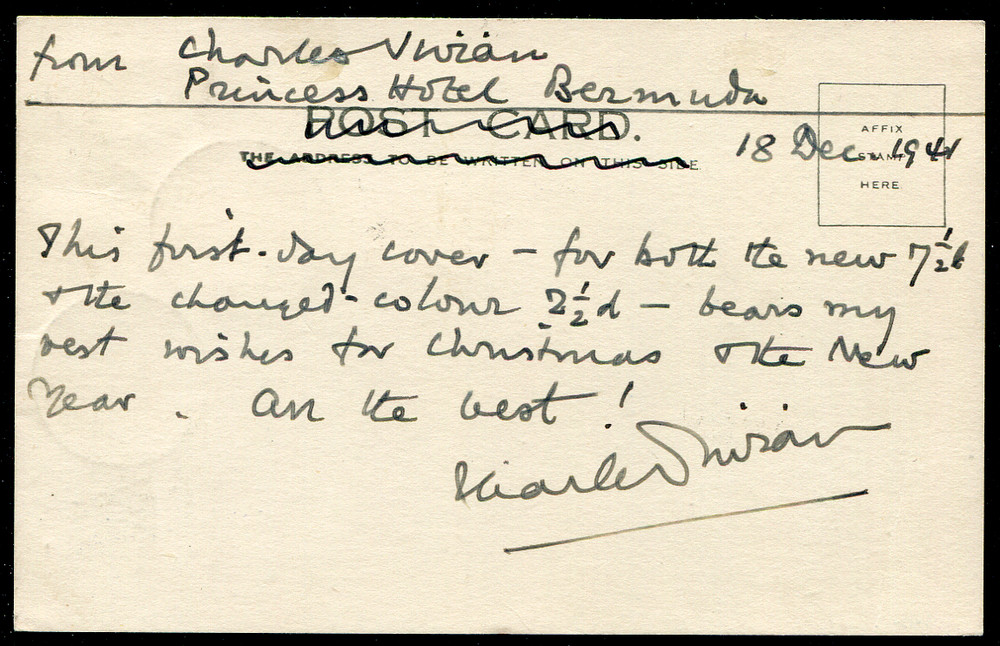 from Charles Vivian
Princess Hotel Bermuda
POST CARD.
THE ADDRESS TO BE WRITTEN ON THIS SIDE
AFFIX
STAMP
HERE
18 Dec. 1941
This first-day cover – for both the new 7½d
& the changed-colour 2½d – bears my
best wishes for Christmas & the New
Year. All the best!
Charles Vivian